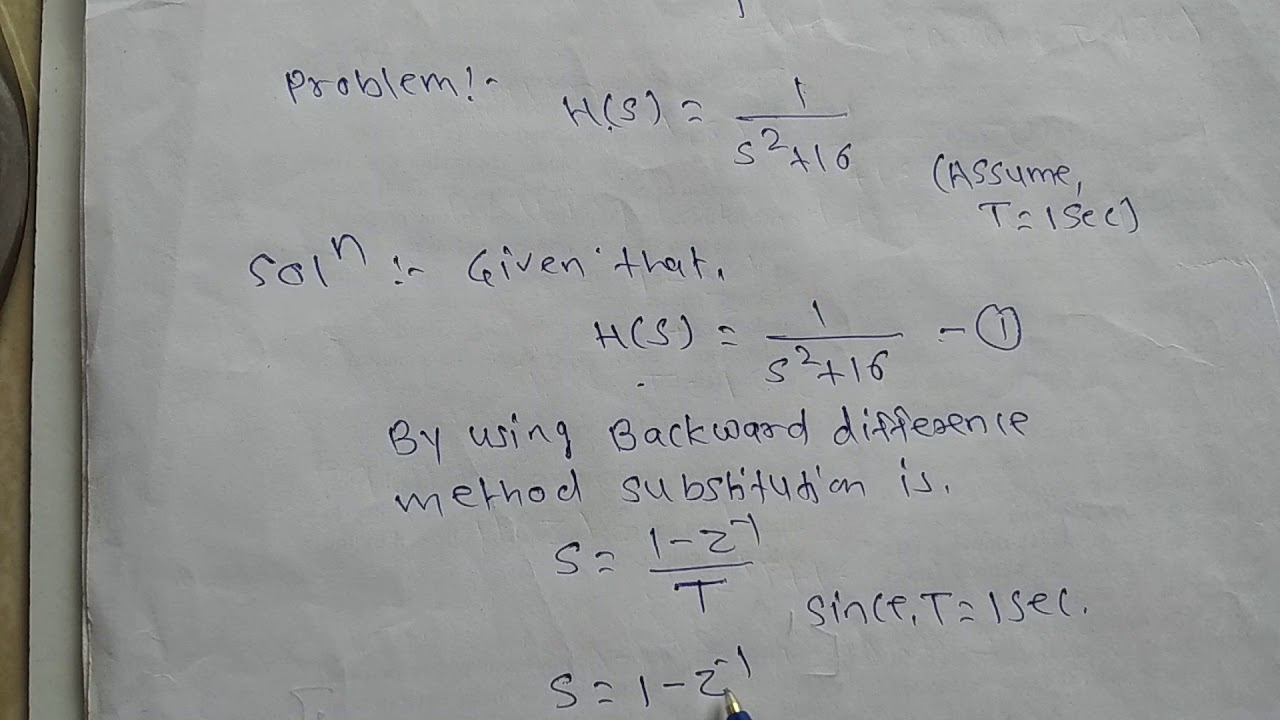 Problem:- H(S) = 1/(s²+16)
(Assume,
T=1sec)
Solⁿ :- Given that,
H(S) = 1/(s²+16) - ①
By using Backward difference
method substitution is.
S = (1-z⁻¹)/T
since, T=1sec.
S = 1-z⁻¹